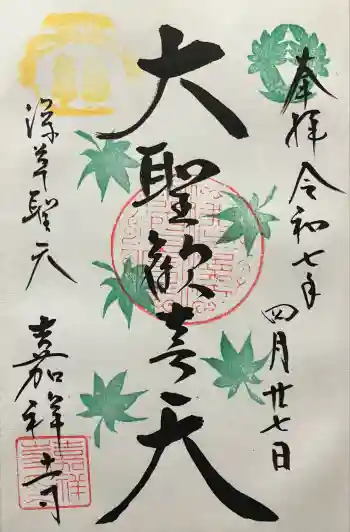 奉拝 令和七年
四月廿七日
大聖歓喜天
深草聖天
嘉祥寺